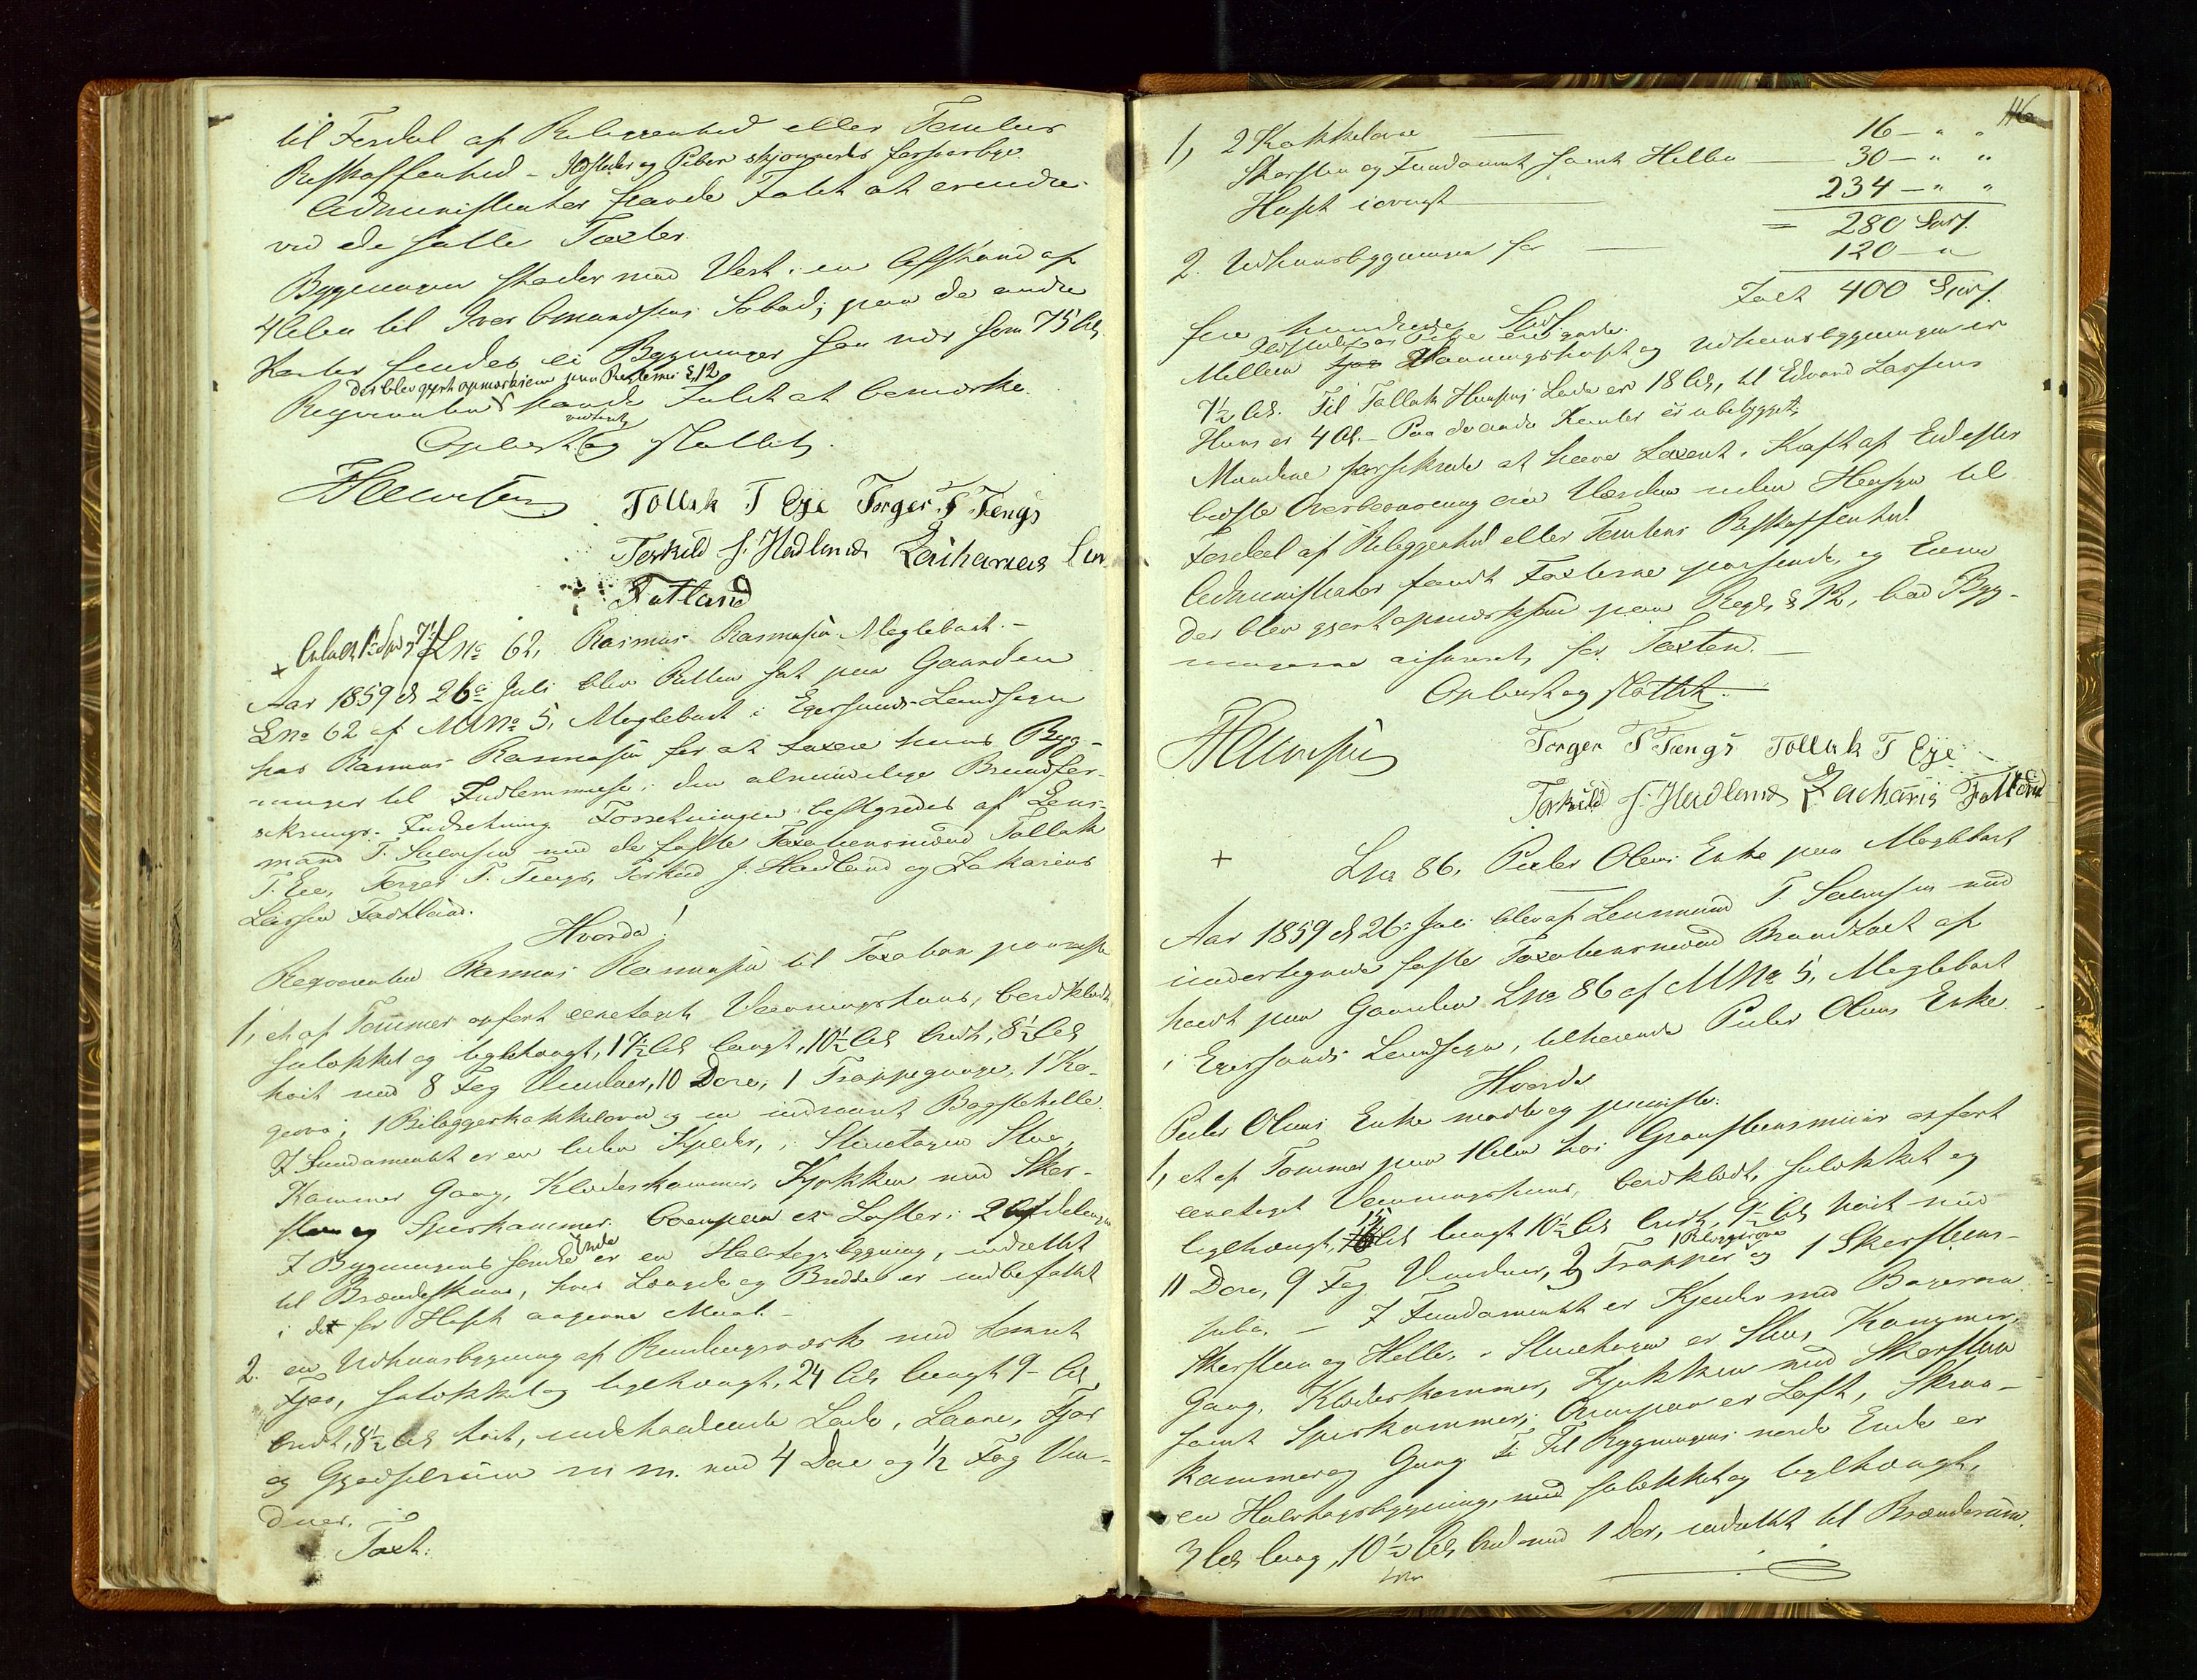 til Fordel af Beliggenhed eller Tomtens
Beskaffenhed – Ildsteder og Piber skjønnedes forsvarlige.
Administrator havde Intet at erindre
ved de satte Taxter.
Bygningen støder mod Vest i en Afstand af
4 Alen til Iver Omundsens Søbod; paa de andre
Kanter findes ei Bygninger saa nær som 75 Al.
der blev gjort opmærksom paa Reglem: §. 12
Reqvirenten havde Intet at bemærke.
vedtaget
Oplæst og sluttet.
TSvendsen Tollak T Eje Torger T. Tengs
Torkild J. Hadland Zacharias Lar.
Fotland
+ L No 62, Rasmus Rasmusen Møglebust. –
Aar 1859 d. 26de Juli blev Retten sat paa Gaarden
L No 62 af M No 5, Møglebust i Egersunds Landsogn
hos Rasmus Rasmusen for at taxere hans Byg-
ninger til Indlemmelse i den almindelige Brandfor-
sikrings-Indretning. Forretningen bestyredes af Lens-
mand T. Svendsen med de faste Taxationsmænd Tollak
T. Eie, Torger T. Tengs, Torkild J. Hadland og Zakarias
Larsen Fodtland.
Hvorda!
Reqvirenten Rasmus Rasmusen til Taxation paaviste
1, et af Tømmer opført eenetages Vaaningshuus, bordklædt
sulokket og teglhængt, 17½ Al. langt, 10½ Al. bredt, 8½ Al.
høit med 8 Fag Vinduer, 10 Døre, 1 Trappegange, 1 Ko-
geovn, 1 Bilæggerkakkelovn og en indmuret Bagstehelle.
I Fundamentet er en liden Kjelder, i Stuetagen Stue,
Kammer Gang, Klædeskammer, Kjøkken med Skor-
steen og Spisekammer. Ovenpaa er Lofter i 2 Afdelinger
I Bygningens søndre Ende er en Halvtagsbygning, indrettet
til Brændeskuur, hvis Længde og Bredde er indbefattet
i det for Huset angivne Maal. –
2. en Udhuusbygning af Bindingsværk med tømret
Fjøs, sulokket og teglhængt, 24 Al. langt 9 – Al.
bredt, 8½ Al. høit, indeholdende Lade, Laave, Fjøs
og Gjødselrum m. m. med 4 Døre og ½ Fag Vin-
duer.
Taxt:
116
1, 2 Kakkelovne — 16 – " "
Skorsteen og Fundament samt Helle — 30 – " "
Huset iøvrigt — 234 – " "
= 280 Spd.
2. Udhuusbygningen for — 120 – "
Taxt 400 Spd.
fire hundrede Spd.
Ildsteder og Pibe ere gode.
Mellem Vaaningshuset og Udhuusbygningen er
7½ Al. Til Tollak Hansens Lade er 18 Al., til Edvard Larsens
Huus er 4 Al. – Paa de andre Kanter er ubebygget.
Mændene forsikrede at have taxeret i Kraft af Eed efter
bedste Overbeviisning om Værdien uden Hensyn til
Fordeel af Beliggenhed eller Tomtens Beskaffenhed.
Administrator fandt Taxterne passende, og Eieren
der blev gjort opmærksom paa Regl. § 12, bad Byg-
ningerne assureret for Taxten. –
Oplæst og sluttet. –
TSvendsen Torger T Tengs Tollak T Eje
Torkild J. Hadland Zacharis Fotland
+ L No 86. Peder Olsens Enke paa Møglebust
Aar 1859 d. 26de Juli blev af Lensmand T. Svendsen med
undertegnede faste Taxationsmænd Brandtaxt af-
holdt paa Gaarden L No 86 af M No 5, Møglebust
i Egersunds Landsogn, tilhørende Peder Olsens Enke.
Hvorda
Peder Olsens Enke mødte og paaviste:
1, et af Tømmer paa 1 Alen høi Graasteensmuur opført
eenetages Vaaningshuus, bordklædt, sulokket og
teglhængt, 15 Al. langt 10½ Al. bredt, 9½ Al. høit med
1 Bilæggerovn
11 Døre, 9 Fag Vinduer, 2 Trapper og 1 Skorsteens-
pibe. – I Fundamentet er Kjelder med Bagerovn
Skorsteen og Helle, i Stuetagen er Stue, Kammer,
Gang, Klædeskammer, Kjøkken med Skorsteen
samt Spisekammer; Ovenpaa er Loft, Skraa-
kammer og Gang Til Bygningens nordre Ende er
en Halvtagsbygning, med sulokket og teglhængt,
3 Al. lang, 10½ Al. bred med 1 Dør, indrettet til Brænderum.